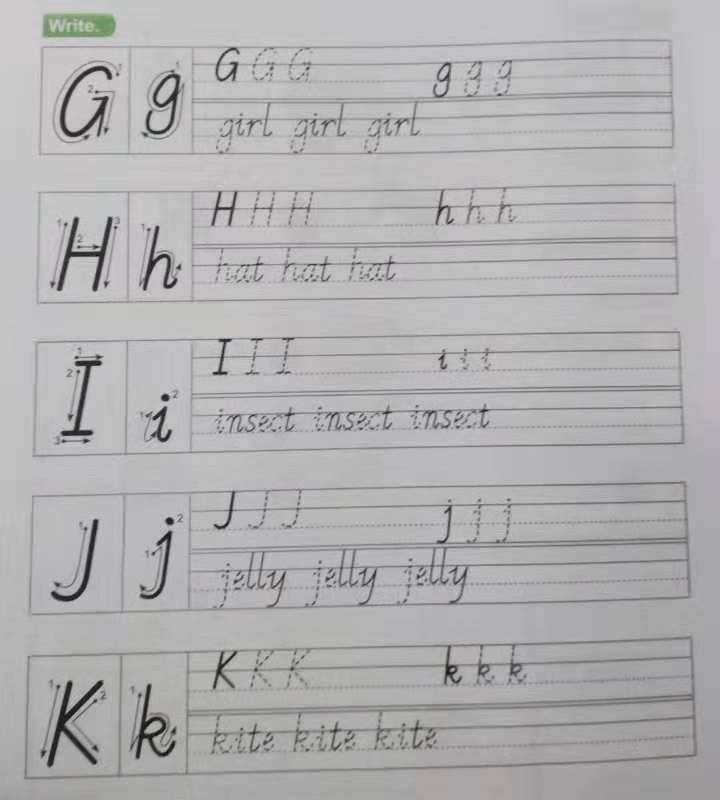 Write.
G g G G G g g g
girl girl girl
H h H H H h h h
hat hat hat
I i I I I i i i
insect insect insect
J j J J J j j j
jelly jelly jelly
K k K K K k k k
kite kite kite